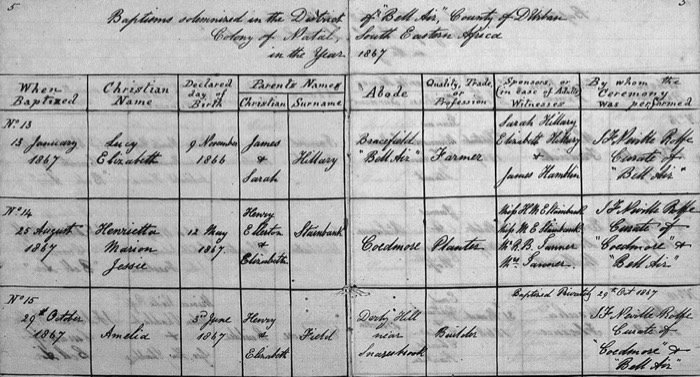 5
3
Baptisms solemnized in the District of "Bell Air", County of D'Urban
Colony of Natal, South Eastern Africa
in the Year 1867
When Baptized
Christian Name
Declared day of Birth
Parents Names
Christian
Surname
Abode
Quality, Trade, or Profession
Sponsors, or (in case of Adults) Witnesses
By whom the Ceremony was performed
No 13
13 January 1867
Lucy Elizabeth
9 November 1866
James & Sarah
Hillary
"Bell Air"
Farmer
Sarah Hillary
Elizabeth Hillary
&
James Hamblin
S F Neville Rolfe
Curate of
"Bell Air"
No 14
25 August 1867
Henrietta Marion Jessie
12 May 1867
Henry Ellerton & Elizabeth
Stainbank
Coedmore
Planter
Miss H M E Stainbank
Miss M E Stainbank
Mr R B Tanner
Mrs Tanner
S F Neville Rolfe
Curate of
"Coedmore &
Bell Air"
No 15
Baptized Privately 29th Oct 1867
29th October 1867
Amelia
3rd June 1867
Henry & Elizabeth
Field
Derby Hill near Snaresbrook
Builder
S F Neville Rolfe
Curate of
"Coedmore" &
"Bell Air"